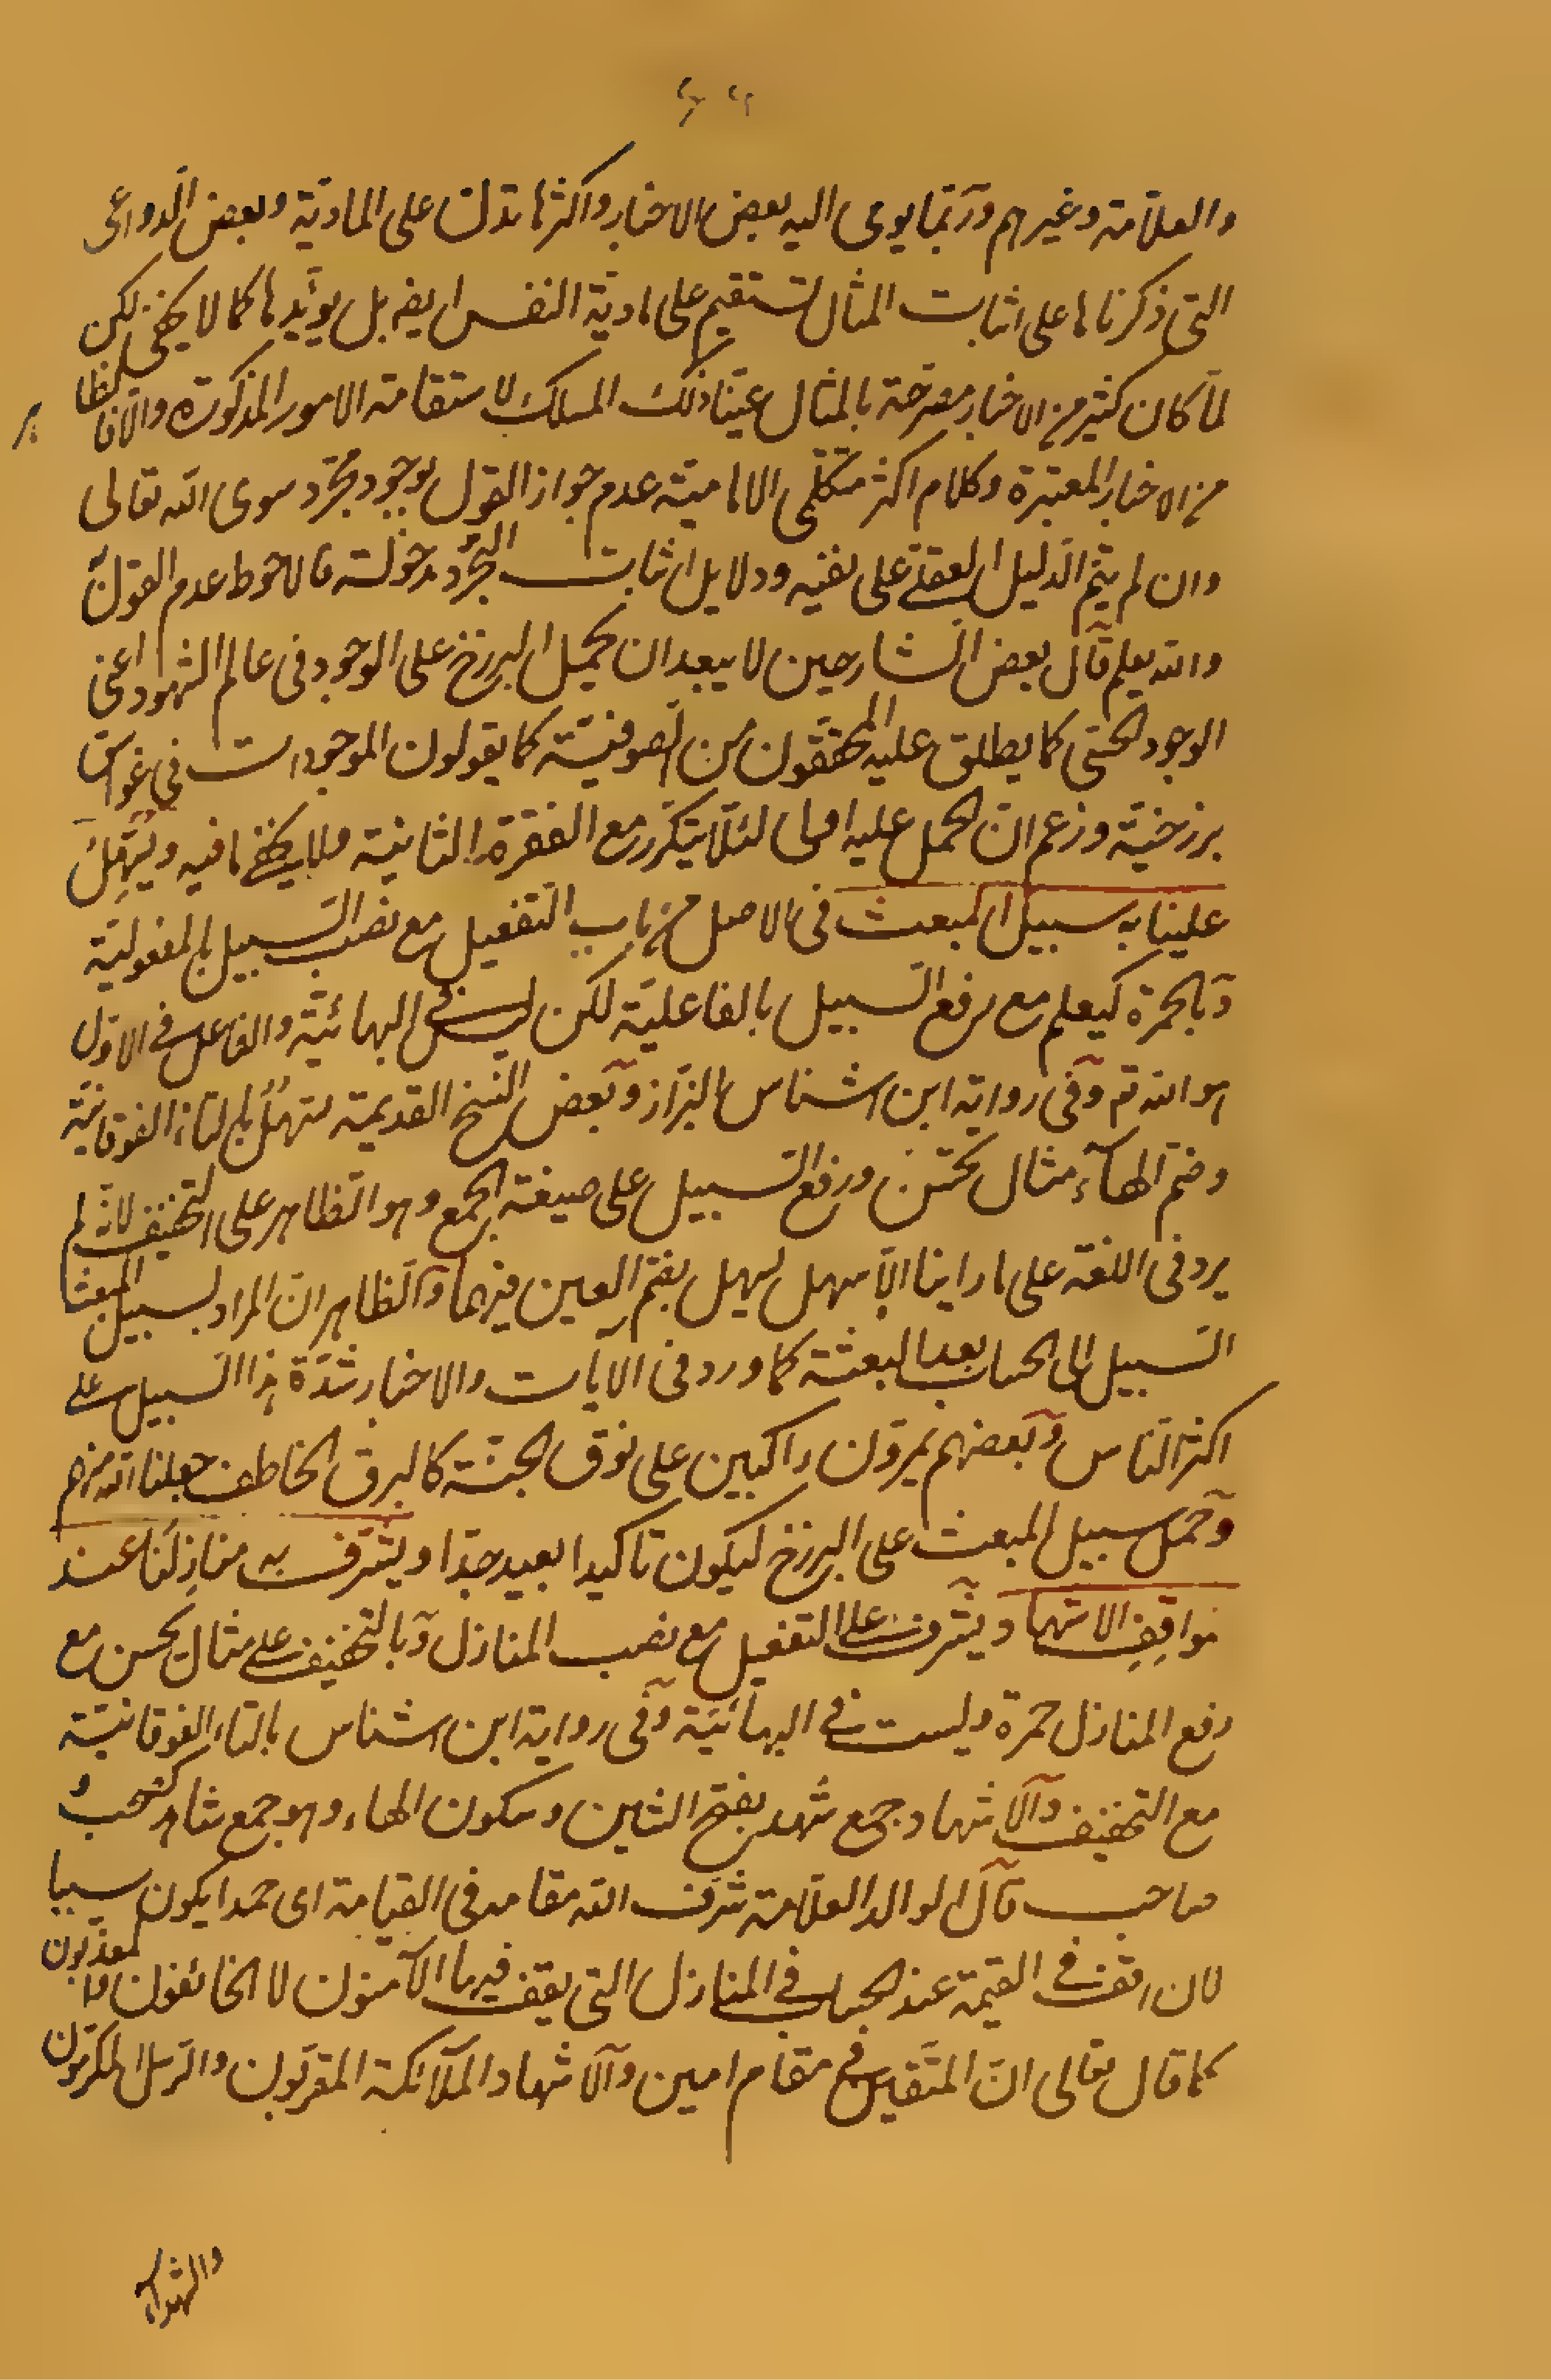 والعلاّمة وغيرهم وربّما يومى اليه بعض الاخبار واكثرها تدلّ على المادّية وبعض الدواعى
التى ذكرناها على اثبات المثال تستقيم على مادية النفس ايضا بل يؤيّدها كما لا يخفى لكن
لمّا كان كثير من الاخبار مصرّحة بالمثال عيّنا ذلك المسلك لاستقامة الامور المذكورة والّا فالظاهر
من الاخبار المعتبرة وكلام اكثر متكلّمى الاماميّة عدم جواز القول بوجود مجرّد سوى الله تعالى
وان لم يتمّ الدّليل العقلى على نفيه ودلايل اثبات التجرّد مدخولة فالاحوط عدم القول به
والله يعلم قال بعض الشارحين لا يبعد ان يحمل البرزخ على الوجود فى عالم الشهود اعنى
الوجود الحسّى كما يطلق عليه المحققون من الصوفيّة كما يقولون الموجودات فى غواسق
برزخيّة وزعم انّ الحمل عليه اولى لئلّا يتكرّر مع الفقرة الثانية ولا يخفى ما فيه ويُسَهِّلُ
علينا به سبيل المبعث فى الاصل من باب التفعيل مع نصب السّبيل بالمفعوليّة
وبالحمرة كيعلم مع رفع السّبيل بالفاعليّة لكن ليس فى البهائيّة والفاعل فى الاوّل
هو الله تع وفى رواية ابن اشناس البزّاز وبعض النسخ القديمة تسهُلُ بالتاء الفوقانيّة
وضمّ الهآء مثال تحسُن ورفع السّبيل على صيغة الجمع وهو الظاهر على التخفيف لانّه لم
يرد فى اللغة على ما راينا الّا سهل يسهل بضمّ العين فيهما والظاهر انّ المراد بسبيل المبعث
السّبيل الى الحساب بعد البعثة كما ورد فى الآيات والاخبار شدّة هذا السّبيل على
اكثر النّاس وبعضهم يمرّون راكبين على نوق الجنّة كالبرق الخاطف جعلنا الله منهم
وحمل سبيل المبعث على البرزخ ليكون تاكيدا بعيد جدّا ويشرّف به منازِلَنا عند
مَواقِفِ الاشهاد ويشرّف على التفعيل مع نصب المنازل وبالتخفيف على مثال يحسن مع
رفع المنازل حمرة وليست فى البهائيّة وفى رواية ابن اشناس بالتاء الفوقانيّة
مع التخفيف والاشهاد جمع شهد بفتح الشين وسكون الهاء وهو جمع شاهد كصحب و
صاحب قال الوالد العلاّمة شرّف الله مقامه فى القيامة اى حمدا يكون سببا
لان اقف فى القيمة عند الحساب فى المنازل التى يقف فيها الآمنون لا الخائفون والمعذّبون
كما قال تعالى انّ المتّقين فى مقام امين والاشهاد الملآئكة المقرّبون والرّسل المكرّمون
والشهداء